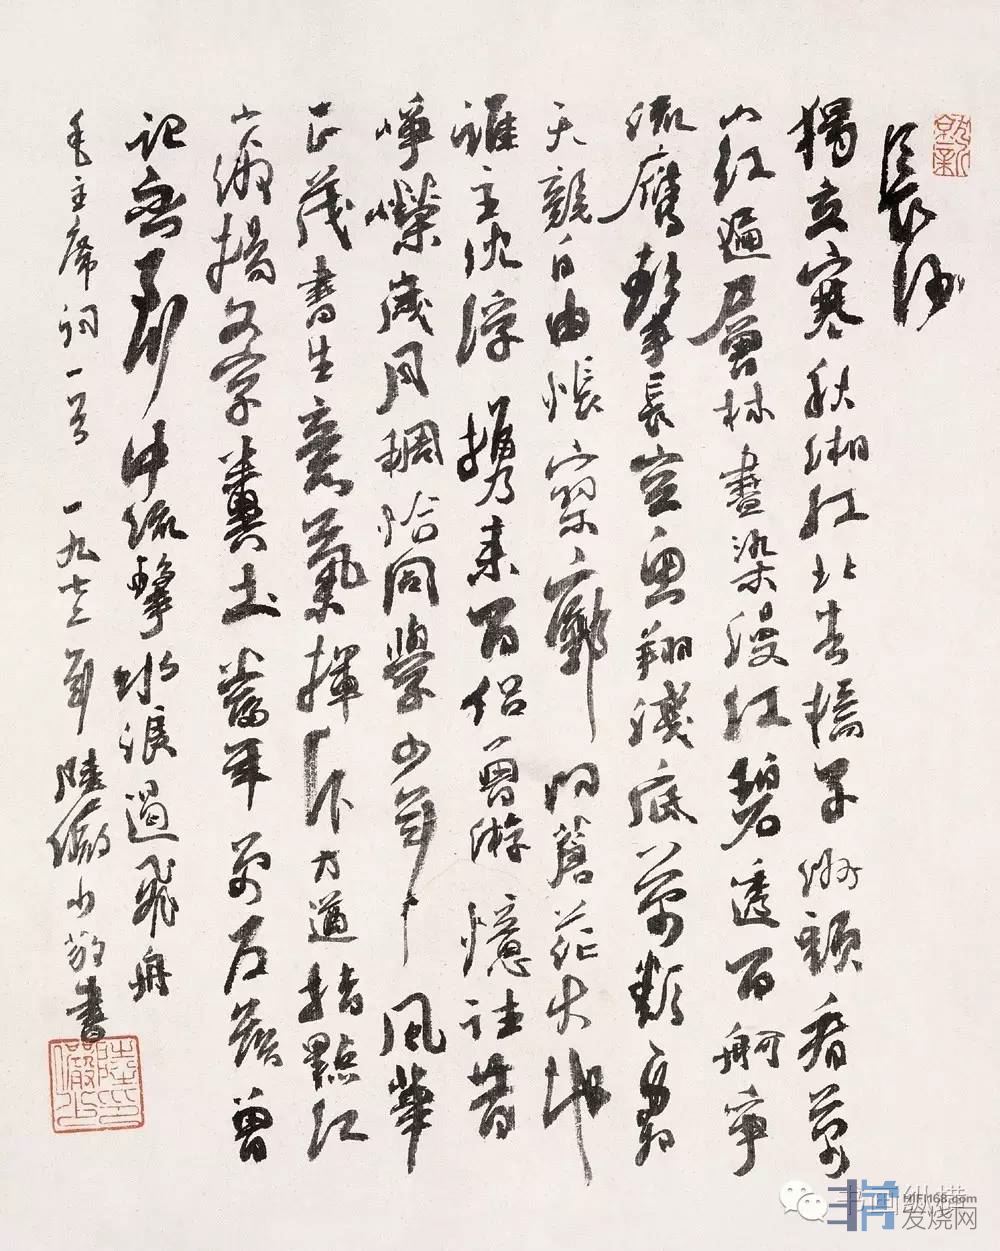 長沙
獨立寒秋湘江北去橘子洲頭看萬
山紅遍層林盡染漫江碧透百舸爭
流鷹擊長空魚翔淺底萬類霜
天競自由悵寥廓問蒼茫大地
誰主沈浮攜來百侶曾游憶往昔
崢嶸歲月稠恰同學少年風華
正茂書生意氣揮斥方遒指點江
山激揚文字糞土當年萬户侯曾
記否到中流擊水浪遏飛舟
毛主席詞一首 一九七 年 陸儼少敬書
陸儼少印
书画纵横
HIFI168.com
发烧网